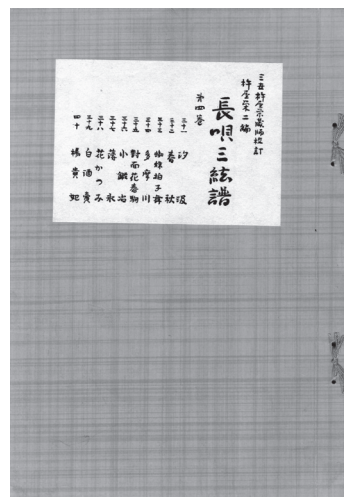 三世杵屋栄蔵師校訂
杵屋栄二編
長唄三絃譜
第四巻
三十一 汐汲
三十二 春秋
三十三 蜘蛛拍子舞
三十四 多摩川
三十五 對面花春駒
三十六 小鍛冶
三十七 薄氷
三十八 花かつみ
三十九 白酒賣
四十 楊貴妃